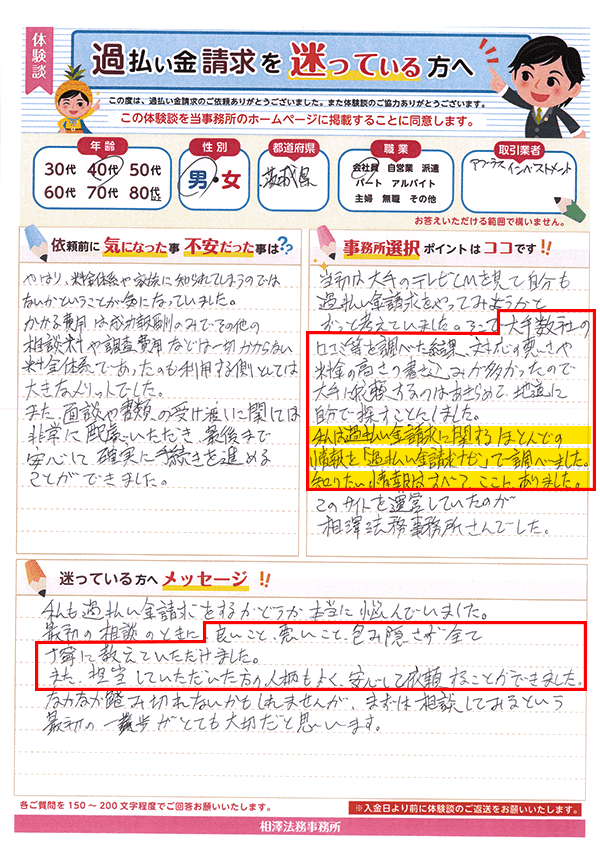 体験談
過払い金請求を迷っている方へ
この度は、過払い金請求のご依頼ありがとうございました。また体験談のご協力ありがとうございます。
この体験談を当事務所のホームページに掲載することに同意します。
年齢
30代 40代 50代
60代 70代 80代以上
性別
男・女
都道府県
茨城県
職業
会社員 自営業 派遣
パート アルバイト
主婦 無職 その他
取引業者
アプラスインベストメント
お答えいただける範囲で構いません。
依頼前に気になった事 不安だった事は??
やはり、料金体系や家族に知られてしまうのでは
ないかということが気になっていました。
かかる費用は成功報酬のみでその他の
相談料や調査費用などは一切かからない
料金体系であったのも利用する側としては
大きなメリットでした。
また、面談や書類の受け渡しに関しては
非常に配慮いただき、最後まで
安心して確実に手続きを進める
ことができました。
事務所選択ポイントはココです!!
当初は大手のテレビCMを見て自分も
過払い金請求をやってみようかと
ずっと考えていました。そこで大手数社の
口コミ等を調べた結果、対応の悪いさや
料金の高さの書き込みが多かったので
大手に依頼するのはあきらめて地道に
自分で探すことにしました。
私は過払い金請求に関するほとんどの
情報を「過払い金請求ナビ」で調べました。
知りたい情報はすべてここにありました。
このサイトを運営していたのが
相澤法務事務所さんでした。
迷っている方へメッセージ!!
私も過払い金請求をするかどうか本当に悩んでいました。
最初の相談のときに良いこと、悪いこと、包み隠さず全て
丁寧に教えていただけました。
また、担当していただいた方の人柄もよく、安心して依頼することができました。
なかなか踏み切れないかもしれませんが、まずは相談してみるという
最初の一歩がとても大切だと思います。
各ご質問を150～200文字程度でご回答お願いいたします。
※入金日より前に体験談のご返送をお願いいたします。
相澤法務事務所